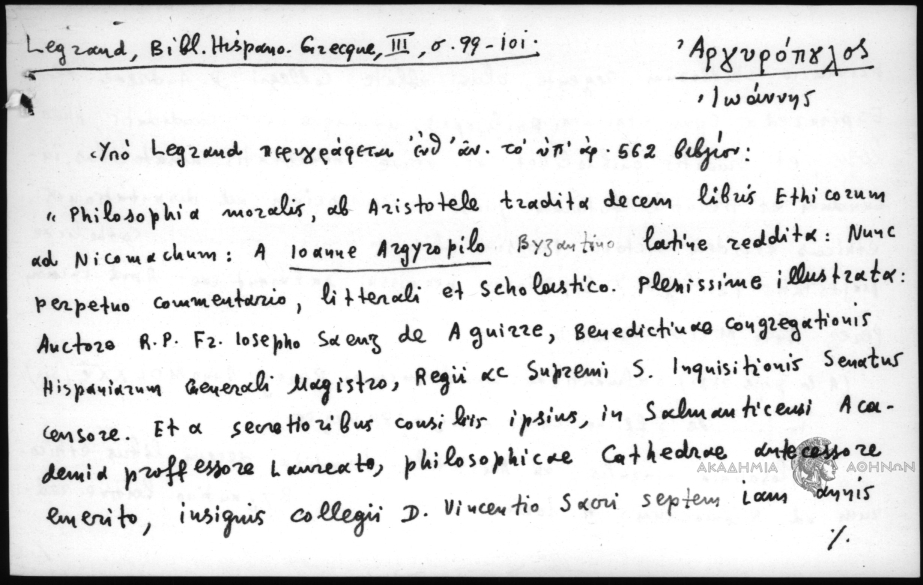 Legrand, Bibl. Hispano. Grecque, III, σ. 99-101.
Ἀργυρόπουλος
Ἰωάννης
Ὑπό Legrand περιγράφεται ἐνθ' ἀν. τό ὑπ' ἀρ. 562 βιβλίον:
"Philosophia moralis, ab Aristotele tradita decem libris Ethicorum
ad Nicomachum: A Ioanne Argyropilo Byzantino latine reddita: Nunc
perpetuo commentario, litterali et Scholastico. Plenissime illustrata:
Auctore R. P. Fr. Iosepho Saenz de Aguirre, Benedictinae Congregationis
Hispaniarum Generali Magistro, Regii ac Supremi S. Inquisitionis Senatus
censore. Et a secretioribus consiliis ipsius, in Salmanticensi Aca-
demia proffessore Laureato, philosophicae Cathedrae antecessore
emerito, insignis collegii D. Vincentio Sacri septem iam annis
./.
ΑΚΑΔΗΜΙΑ ΑΘΗΝΩΝ